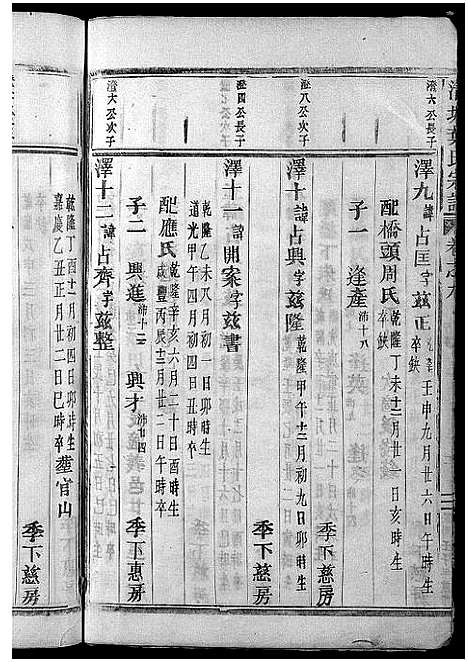 宗譜
卷之九
澄六公長子
澤九諱占匡字玆正 壬申九月廿六日午時生
卒缺
配橋頭周氏 乾隆丁未十二月廿一日亥時生
卒缺
子一 逢產 沛十八
季下慈房
澄八公次子
澤十諱占興字玆隆 乾隆甲午十二月初九日卯時生
季下慈房
澄四公長子
澤十一諱開案字玆書 乾隆乙未八月初一日卯時生
道光甲午四月初四日丑時卒
配應氏 乾隆辛亥六月二十日酉時生
咸豐丙辰十二月廿二日巳時卒
子二 興進 興才 沛廿四
季下惠房
澄六公次子
澤十二諱占齊字玆整 乾隆丁酉十二月初四日卯時生
嘉慶乙丑正月廿二日巳時卒 塟官山
季下慈房